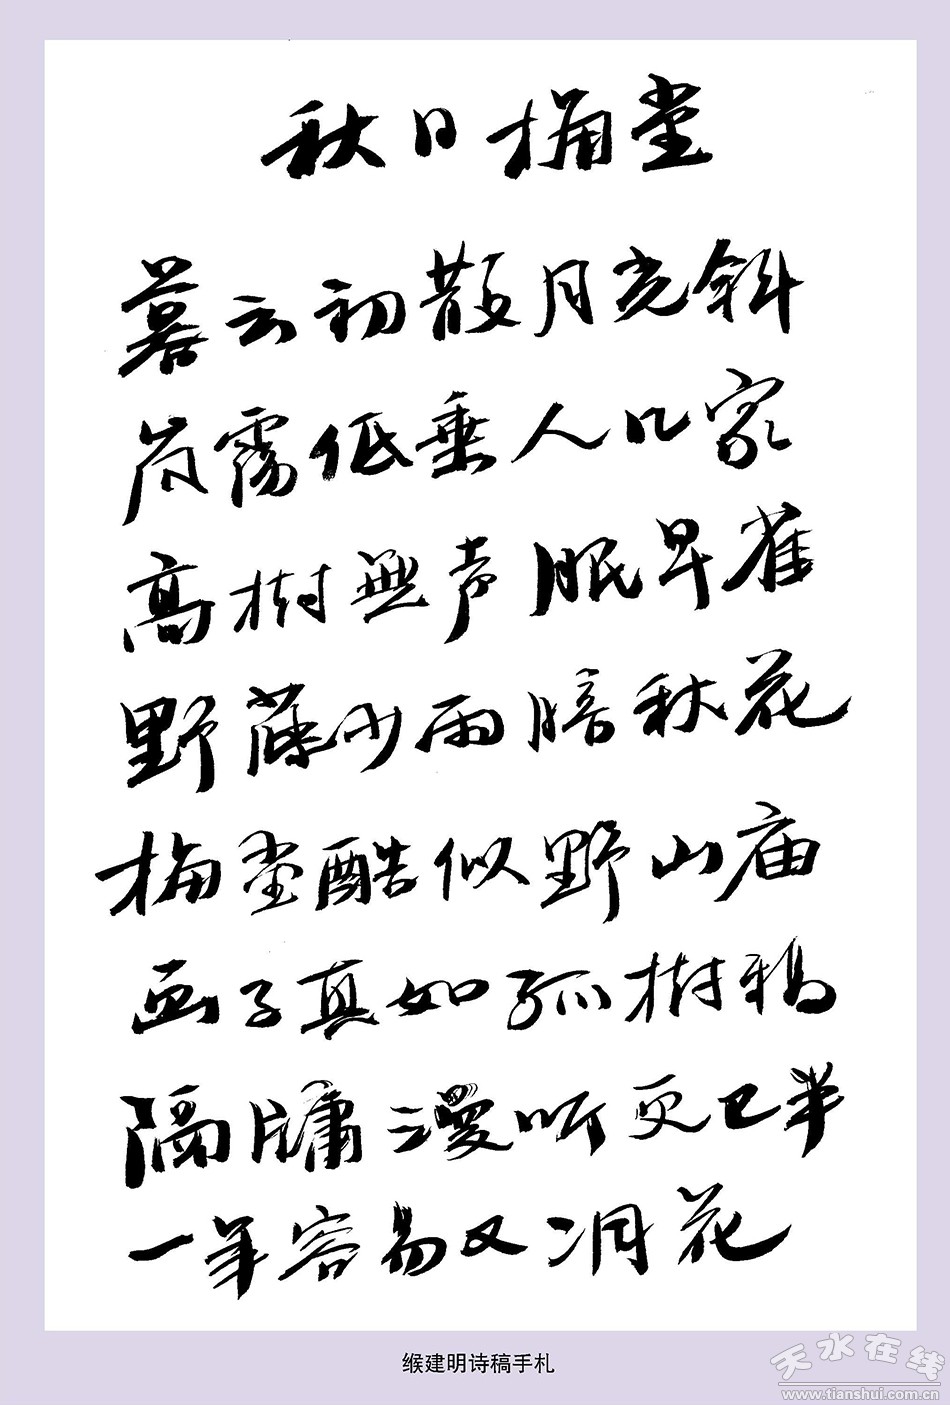 秋日堂
暮云初散月光斜
低垂人几家
高樹無声眠早雀
野藤少雨暗秋花
堂酷似野山庙
画子真如孤樹鸦
隔牖漫听更已半
一年容易又凋花
缑建明诗稿手札
天水在线
www.tianshui.com.cn